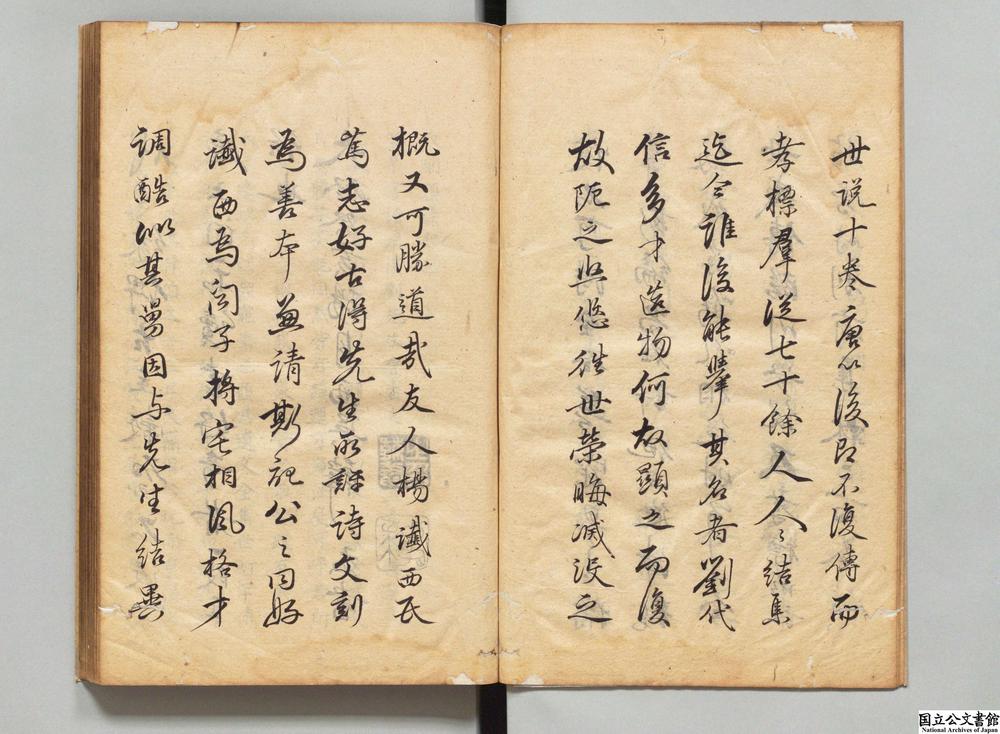 世説十卷唐以後即不復傳而
孝標羣從七十餘人人々結集
迄今誰復能舉其名者劉代
信多才造物何故顯之而復
故阨之與悠往世榮晦滅沒之
概又可勝道哉友人楊讖西氏
篤志好古得先生所評詩文刻
為善本兼請斯記公之同好
讖西為閤子將宅相風格才
調酷似其舅因与先生結異
国立公文書館
National Archives of Japan